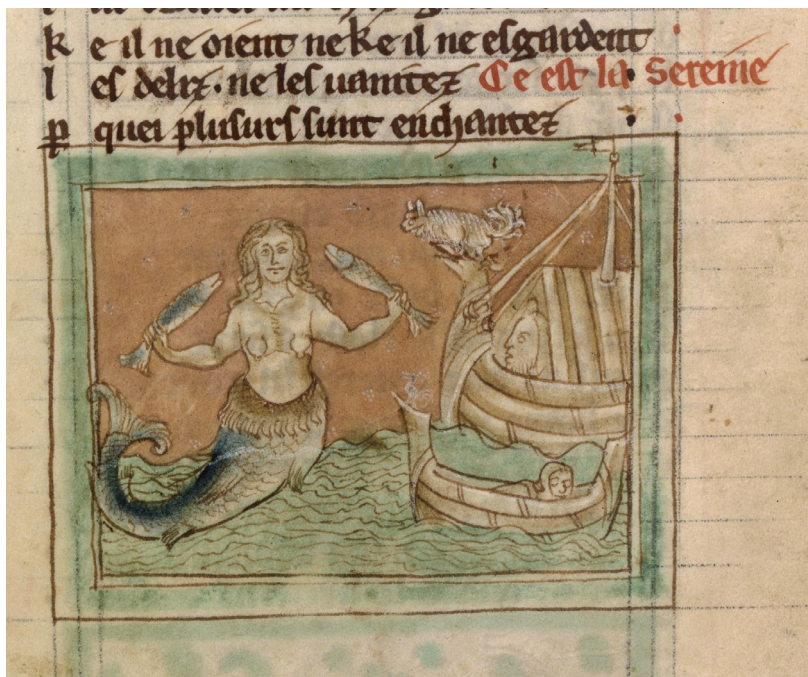 k e il ne oient ne ke il ne esgardent
l es deliz. ne les uanitez Ce est la Sereine
ꝑ quei plusurs sunt enchantez